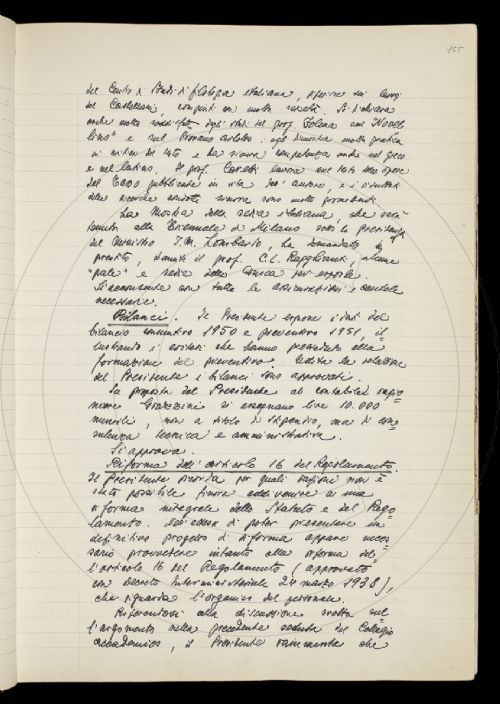 155
del Centro di Studi di filologia italiana, riferisce sui lavori
del Castellani, compiuti con molta serietà. Si dichiara
anche molto soddisfatto degli studi del prof. Folena sul Novel
lino" e sul : egli dimostra molta pratica
in critica del testo e ha sicura competenza anche nel greco
e nel latino. Il prof. Caretti lavora sul testo delle opere
del Tasso pubblicate in vita dell'autore, e i risultati
delle ricerche condotte finora sono molto promettenti.
La Mostra della sedia italiana, che sarà
tenuta alla Triennale di Milano sotto la presidenza
del Ministro I.M. Lombardo, ha domandato in
prestito, tramite il prof. C.L. Ragghianti, alcune
"pale" e sedie della Crusca per esporle.
Si acconsente con tutte le assicurazioni e cautele
necessarie.
Bilanci. Il Presidente espone i dati del
bilancio consuntivo 1950 e preventivo 1951, il=
lustrando i criteri che hanno presieduto alla
formazione del preventivo. Udita la relazione
del Presidente i bilanci sono approvati.
Su proposta del Presidente al contabile ragio=
niere si assegnano lire 10.000
mensili, non a titolo di stipendio, ma di con=
sulenza tecnica e amministrativa.
Si approva.
Riforma dell'articolo 16 del Regolamento.
Il Presidente ricorda per quali ragioni non è
stato possibile finora addivenire a una
riforma integrale dello Statuto e del Rego=
lamento. Nell'attesa di poter presentare un
definitivo progetto di riforma appare neces=
sario provvedere intanto alla riforma del=
l'articolo 16 del Regolamento (approvato
con Decreto Interministeriale 24 marzo 1938),
che riguarda l'organico del personale.
Riferendosi alla discussione svolta sul=
l'argomento nella precedente seduta del Collegio
accademico, il Presidente rammenta che